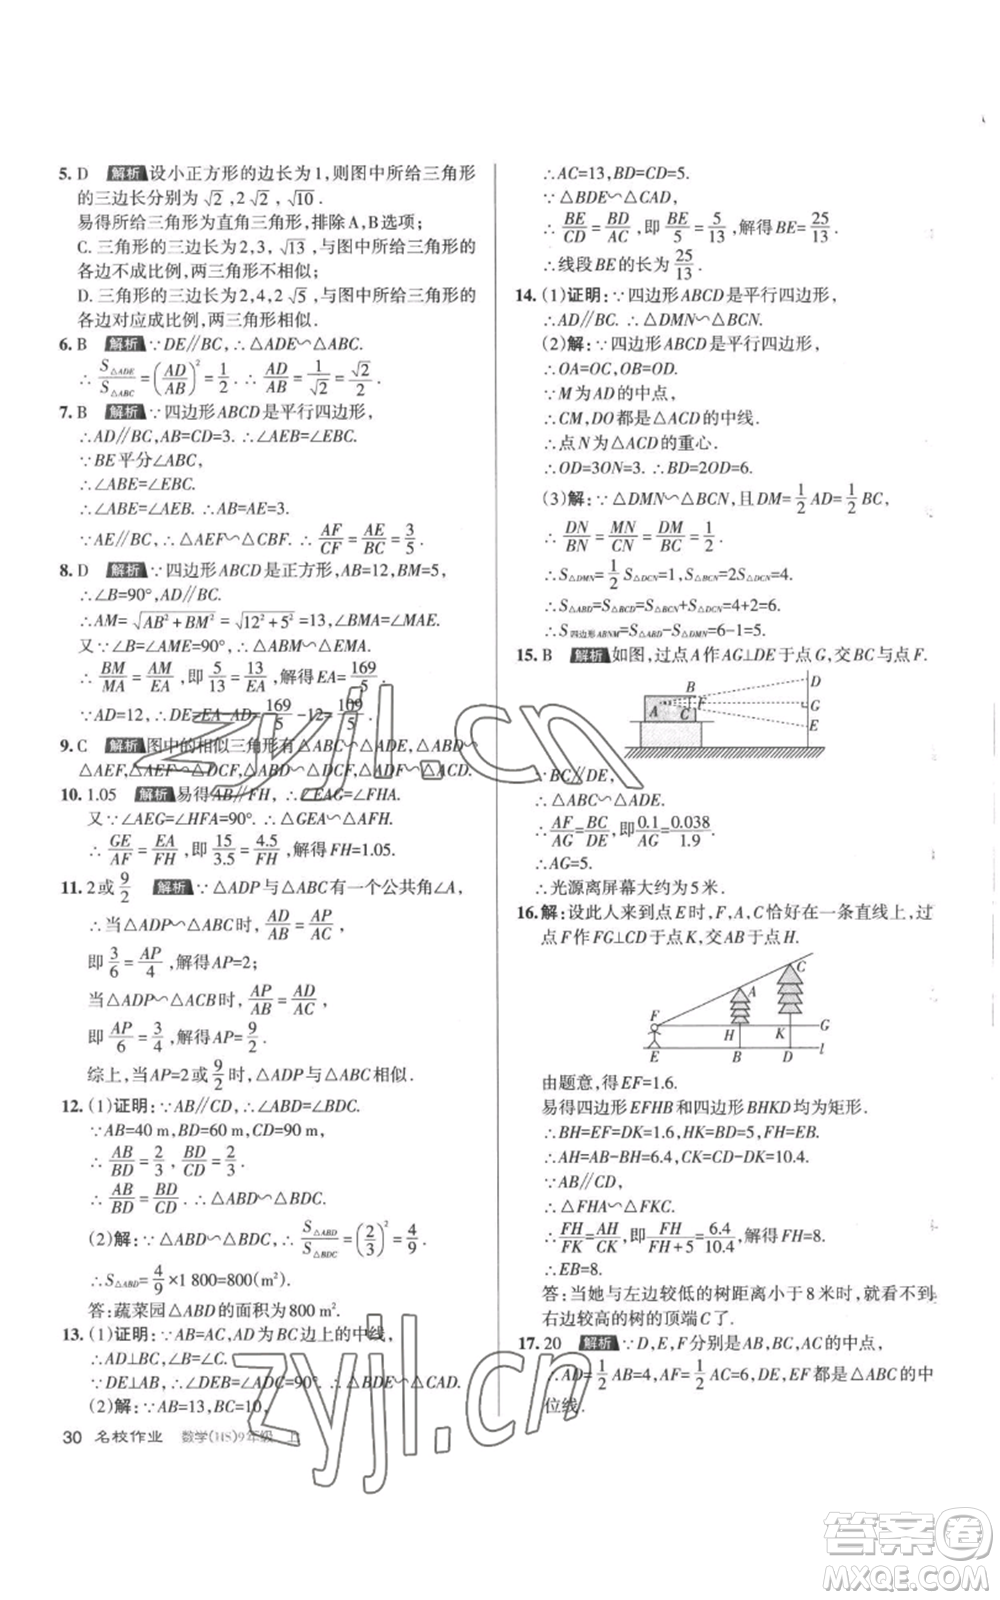 5. D 解析 设小正方形的边长为1,则图中所给三角形
的三边长分别为√2,2√2,√10.
易得所给三角形为直角三角形,排除A,B选项;
C. 三角形的三边长为2,3,√13,与图中所给三角形的
各边不成比例,两三角形不相似;
D. 三角形的三边长为2,4,2√5,与图中所给三角形的
各边对应成比例,两三角形相似.
6. B 解析 ∵DE∥BC,∴△ADE∽△ABC.
∴S△ADE/S△ABC=(AD/AB)²=1/2. ∴AD/AB=1/√2=√2/2.
7. B 解析 ∵四边形ABCD是平行四边形,
∴AD∥BC,AB=CD=3. ∴∠AEB=∠EBC.
∵BE平分∠ABC,
∴∠ABE=∠EBC.
∴∠ABE=∠AEB. ∴AB=AE=3.
∵AE∥BC,∴△AEF∽△CBF. ∴AF/CF=AE/BC=3/5.
8. D 解析 ∵四边形ABCD是正方形,AB=12,BM=5,
∴∠B=90°,AD∥BC.
∴AM=√(AB²+BM²)=√(12²+5²)=13,∠BMA=∠MAE.
又∵∠B=∠AME=90°,∴△ABM∽△EMA.
∴BM/MA=AM/EA,即5/13=13/EA,解得EA=169/5.
∵AD=12,∴DE=EA-AD=169/5-12=109/5.
9. C 解析 图中的相似三角形有△ABC∽△ADE,△ABC∽
△AEF,△ABC∽△DCF,△ADE∽△DCF,△ADF∽△ACD.
10. 1.05 解析 易得AB∥FH,∴∠EAG=∠FHA.
又∵∠AEG=∠HFA=90°,∴△GEA∽△AFH.
∴GE/AF=EA/FH,即15/3.5=4.5/FH,解得FH=1.05.
11. 2或9/2 解析 ∵△ADP与△ABC有一个公共角∠A,
∴当△ADP∽△ABC时,AD/AB=AP/AC,
即3/6=AP/4,解得AP=2;
当△ADP∽△ACB时,AP/AB=AD/AC,
即AP/6=3/4,解得AP=9/2.
综上,当AP=2或9/2时,△ADP与△ABC相似.
12. (1)证明:∵AB∥CD,∴∠ABD=∠BDC.
∵AB=40 m,BD=60 m,CD=90 m,
∴AB/BD=2/3,BD/CD=2/3.
∴AB/BD=BD/CD. ∴△ABD∽△BDC.
(2)解:∵△ABD∽△BDC,∴S△ABD/S△BDC=(2/3)²=4/9.
∴S△ABD=4/9×1 800=800(m²).
答:蔬菜园△ABD的面积为800 m².
13. (1)证明:∵AB=AC,AD为BC边上的中线,
∴AD⊥BC,∠B=∠C.
∵DE⊥AB,∴∠DEB=∠ADC=90°. ∴△BDE∽△CAD.
(2)解:∵AB=13,BC=10,
∴AC=13,BD=CD=5.
∵△BDE∽△CAD,
∴BE/CD=BD/AC,即BE/5=5/13,解得BE=25/13.
∴线段BE的长为25/13.
14. (1)证明:∵四边形ABCD是平行四边形,
∴AD∥BC. ∴△DMN∽△BCN.
(2)解:∵四边形ABCD是平行四边形,
∴OA=OC,OB=OD.
∵M为AD的中点,
∴CM,DO都是△ACD的中线.
∴点N为△ACD的重心.
∴OD=3ON=3. ∴BD=2OD=6.
(3)解:∵△DMN∽△BCN,且DM=1/2AD=1/2BC,
∴DN/BN=MN/CN=DM/BC=1/2.
∴S△DMN=1/2S△CDN=1,S△BCN=2S△CDN=4.
∴S△ABD=S△BCD=S△BCN+S△CDN=4+2=6.
∴S四边形ABNM=S△ABD-S△DMN=6-1=5.
15. B 解析 如图,过点A作AG⊥DE于点G,交BC与点F.
D
B
A
F
G
C
E
∵BC∥DE,
∴△ABC∽△ADE.
∴AF/AG=BC/DE,即0.1/AG=0.038/1.9.
∴AG=5.
∴光源离屏幕大约为5米.
16. 解:设此人来到点E时,F,A,C恰好在一条直线上,过
点F作FG⊥CD于点K,交AB于点H.
C
A
F
H
K
G
E
B
D
l
由题意,得EF=1.6.
易得四边形EFHB和四边形BHKD均为矩形.
∴BH=EF=DK=1.6,HK=BD=5,FH=EB.
∴AH=AB-BH=6.4,CK=CD-DK=10.4.
∵AB∥CD,
∴△FHA∽△FKC.
∴FH/FK=AH/CK,即FH/(FH+5)=6.4/10.4,解得FH=8.
∴EB=8.
答:当她与左边较低的树距离小于8米时,就看不到
右边较高的树的顶端C了.
17. 20 解析 ∵D,E,F分别是AB,BC,AC的中点,
∴AD=1/2AB=4,AF=1/2AC=6,DE,EF是△ABC的中
位线.
30 名校作业 数学(HS)9年级 上
zyjl.cn
zyjl.cn
答案圈
MXQE.COM